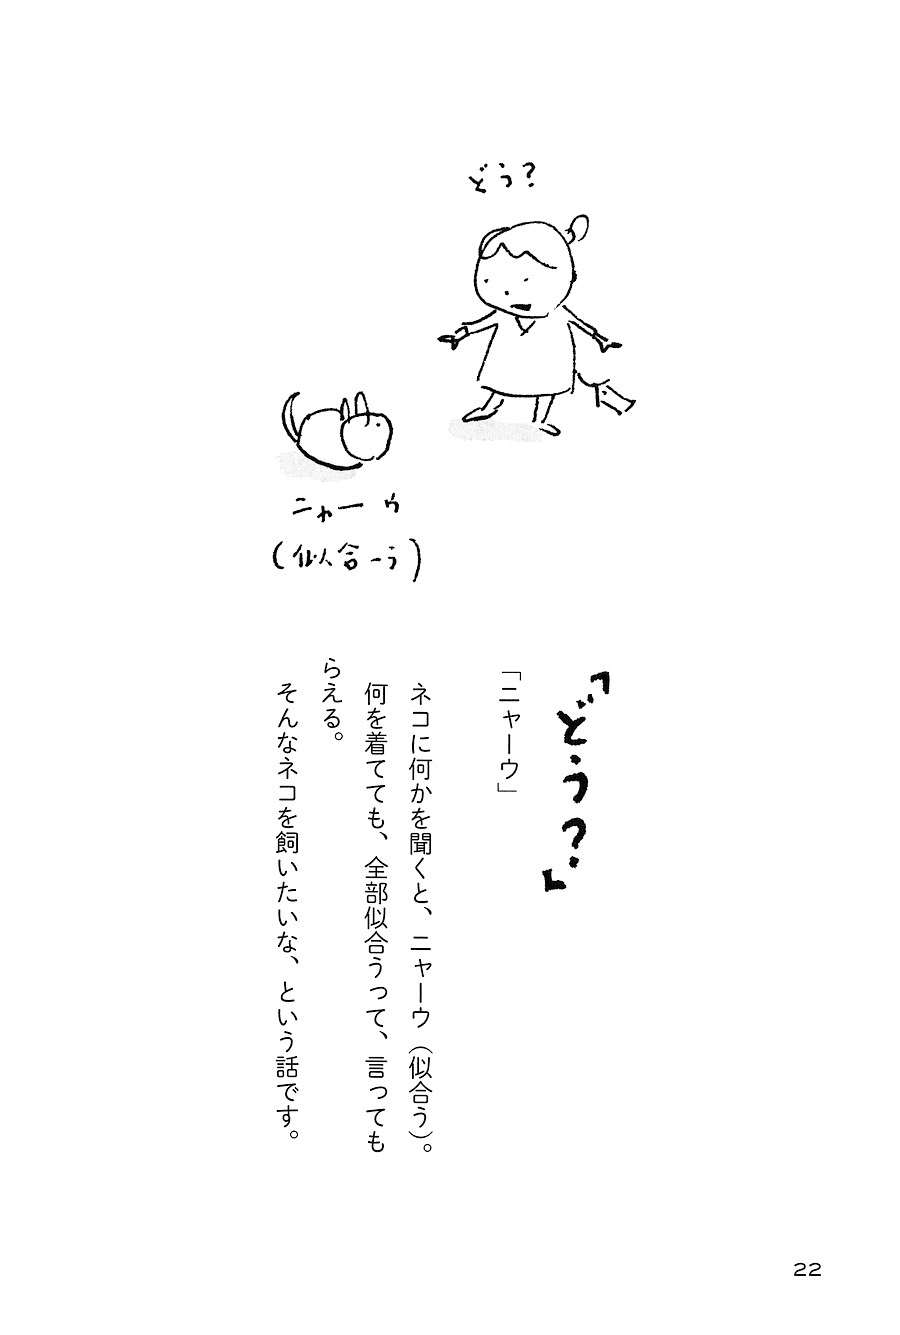 どう?
ニャーウ
(似合ーう)
「どう?」
「ニャーウ」
ネコに何かを聞くと、ニャーウ(似合う)。
何を着てても、全部似合うって、言っても
らえる。
そんなネコを飼いたいな、という話です。
22